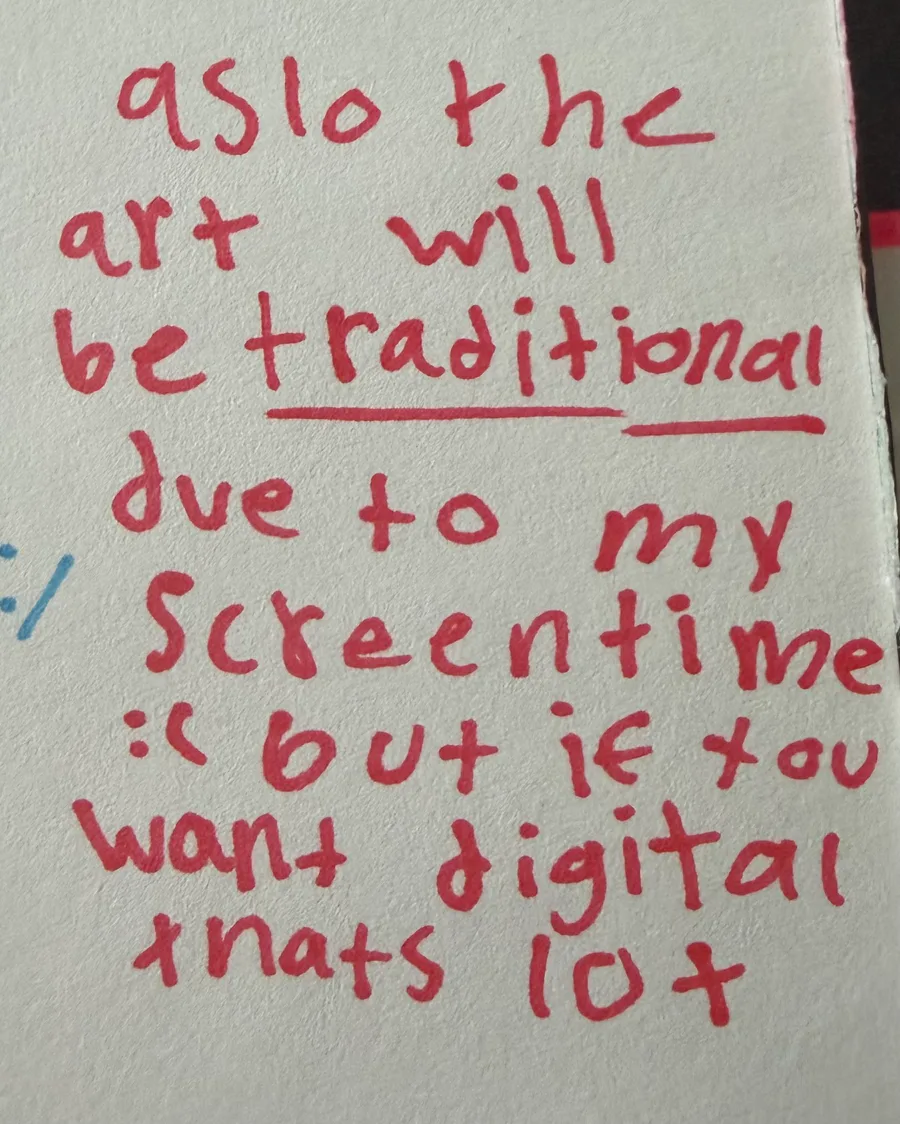 aslo the
art will
be traditional
due to my
:/
screentime
:( but if you
want digital
thats 10+